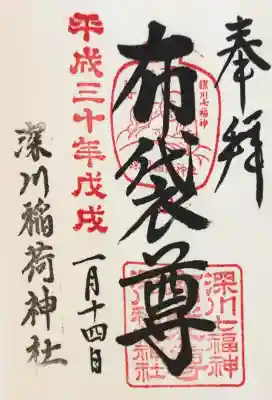 奉拝
深川七福神
布袋尊
深川七福神
平成三十年戊戌
一月十四日
深川稲荷神社